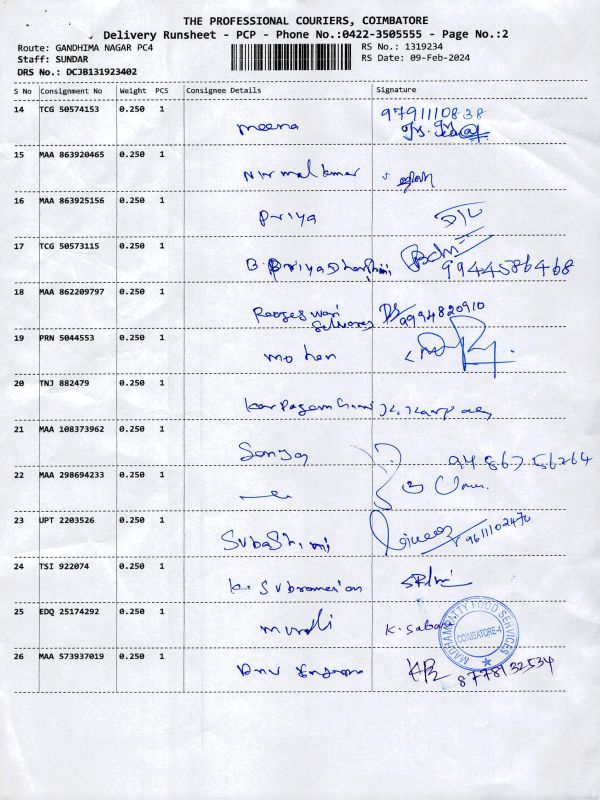 THE PROFESSIONAL COURIERS, COIMBATORE
Delivery Runsheet - PCP - Phone No.:0422-3505555 - Page No.:2
Route: GANDHIMA NAGAR PC4 RS No.: 1319234
Staff: SUNDAR RS Date: 09-Feb-2024
DRS No.: DCJB131923402
S No Consignment No Weight PCS Consignee Details Signature
14 TCG 50574153 0.250 1 9791110838
meena
15 MAA 863920465 0.250 1
Nirmal kumar
16 MAA 863925156 0.250 1
Priya
17 TCG 50573115 0.250 1
B. Priya Dharshini 9944586468
18 MAA 862209797 0.250 1
9994820910
19 PRN 5044553 0.250 1
mohan
20 TNJ 882479 0.250 1
21 MAA 108373962 0.250 1
Sonya 9486756264
22 MAA 298694233 0.250 1
23 UPT 2203526 0.250 1
Subashini 9611102470
24 TSI 922074 0.250 1
K. Subramanian
25 EDQ 25174292 0.250 1
murali K. Sabari
MADHAMPATTY FOOD SERVICES
COIMBATORE-4
26 MAA 573937019 0.250 1
8778132534